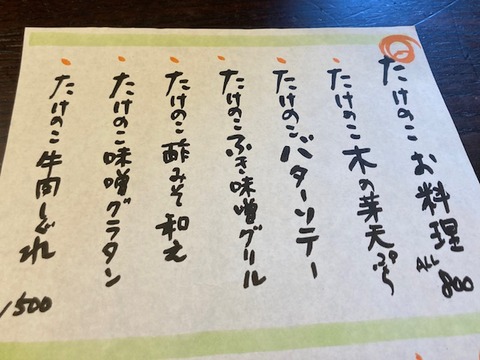 たけのこお料理 ALL 800
たけのこ木の芽天ぷら
たけのこバターソテー
たけのこふき味噌グリル
たけのこ酢みそ和え
たけのこ味噌グラタン
たけのこ牛肉しぐれ 1500